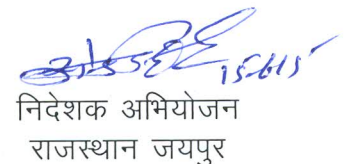 15-6-15
निदेशक अभियोजन
राजस्थान जयपुर